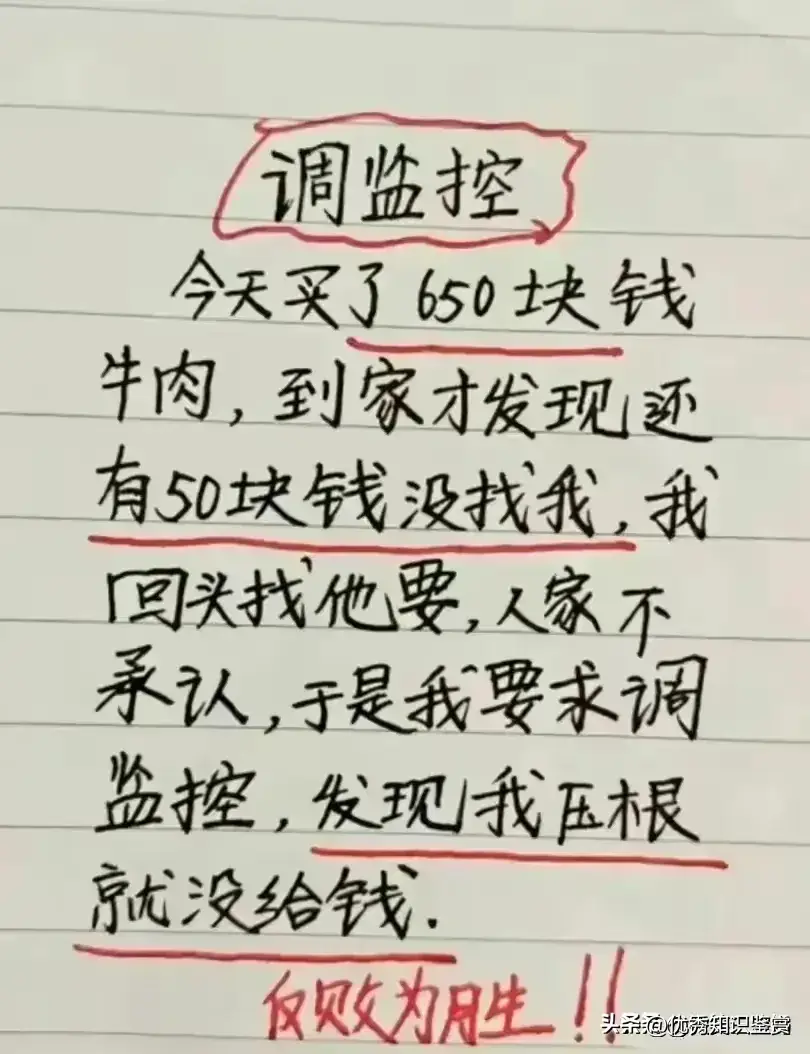 调监控
今天买了650块钱
牛肉，到家才发现还
有50块钱没找我，我
回头找他要，人家不
承认，于是我要求调
监控，发现我压根
就没给钱.
反败为胜!!
头条 @优秀知识鉴赏